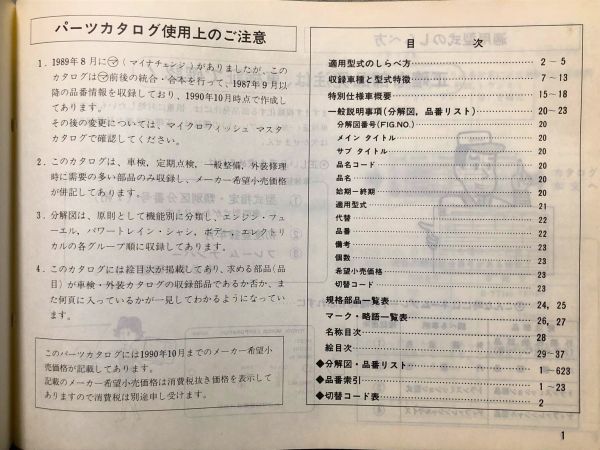 パーツカタログ使用上のご注意
1. 1989年8月に㋮(マイナチェンジ)がありましたが、この
カタログは㋮前後の統合・合本を行って、1987年9月以
降の品番情報を収録しており、1990年10月時点で作成し
てあります。
その後の変更については、マイクロフィッシュ マスタ
カタログで確認してください。
2. このカタログは、車検、定期点検、一般整備、外装修理
時に需要の多い部品のみ収録し、メーカー希望小売価格
が併記してあります。
3. 分解図は、原則として機能別に分類し、エンジン・フュ
ーエル、パワートレイン・シャシ、ボデー、エレクトリ
カルの各グループ順に収録してあります。
4. このカタログには絵目次が掲載してあり、求める部品(品
目)が車検・外装カタログの収録部品であるか否か、ま
た何頁に入っているかが一見してわかるようになってい
ます。
このパーツカタログには1990年10月までのメーカー希望小
売価格が記載してあります。
記載のメーカー希望小売価格は消費税抜き価格を表示して
ありますので消費税は別途申し受けます。
目 次
適用型式のしらべ方 2-5
収録車種と型式特徴 7-13
特別仕様車概要 15-18
一般説明事項(分解図,品番リスト) 20-23
分解図番号(FIG.NO.) 20
メイン タイトル 20
サブ タイトル 20
品名コード 20
品名 20
始期-終期 20
適用型式 21
代替 22
品番 22
備考 23
個数 23
希望小売価格 23
切替コード 23
規格部品一覧表 24, 25
マーク・略語一覧表 26, 27
名称目次 28
絵目次 29-37
◆分解図・品番リスト 1-623
◆品番索引 1-23
◆切替コード表 2
1